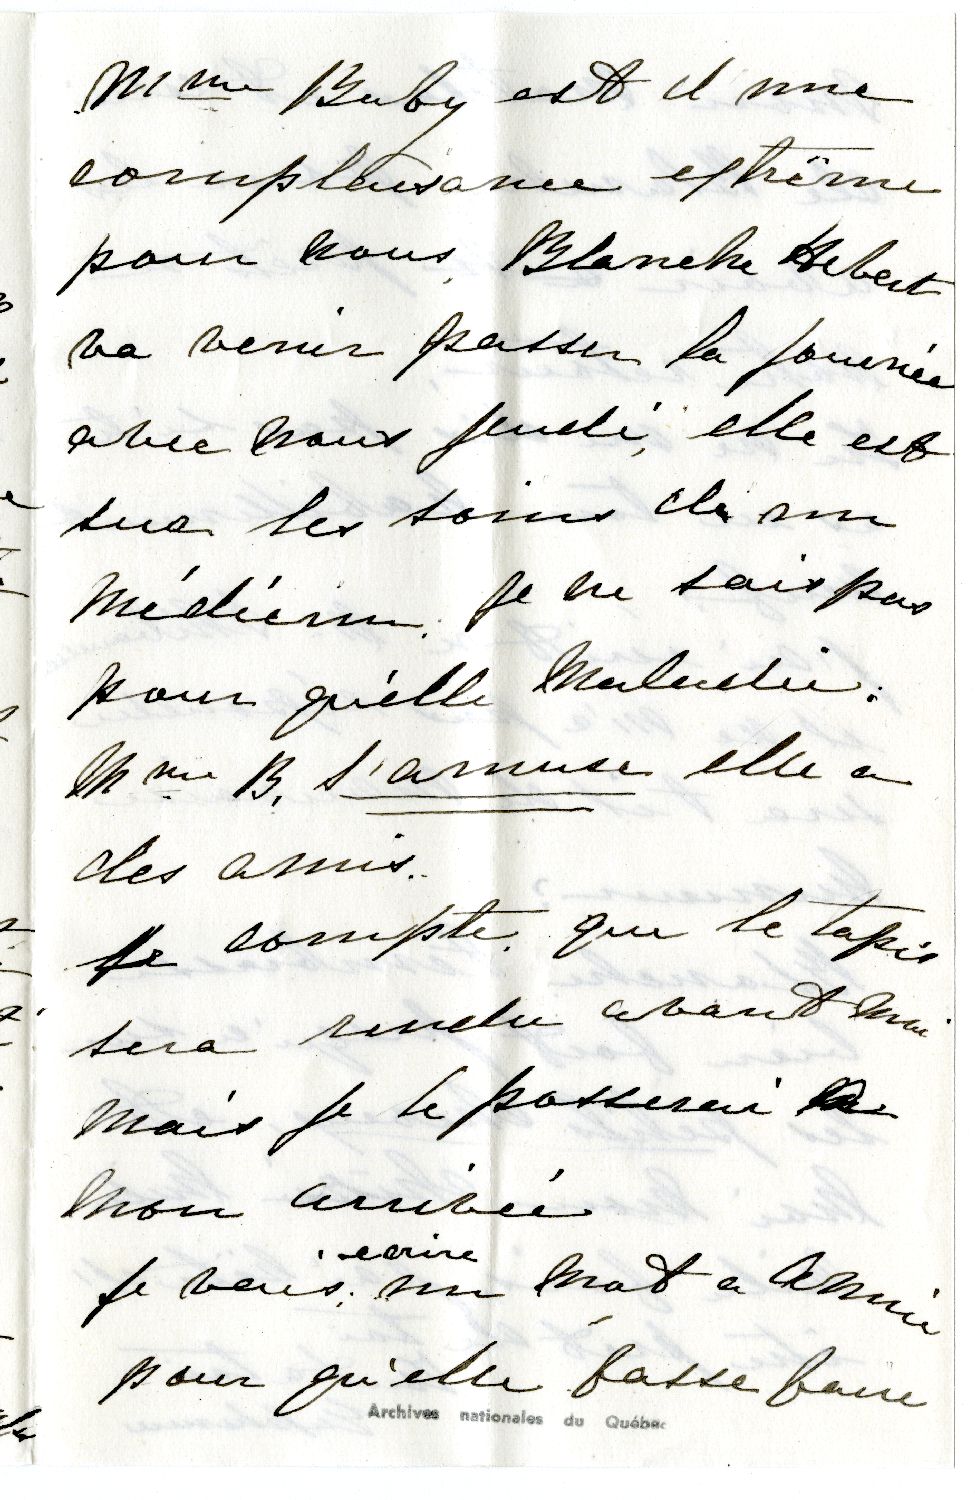 Mme Buby est d'une
complaisance extrême
pour nous, Blanche Hebert
va venir passer la journée
avec nous jeudi, elle est
sur les soins de un
Médécin. je ne sais pas
pour qu'elle Maladie.
Mme B. s'amuse elle a
des amis.
Je compte que le tapis
sera rendu avant Mai
Mais je le posserai
Mon arrivée
écrire
je vais un Mot a Annie
pour qu'elle fasse faire
Archives nationales du Québec